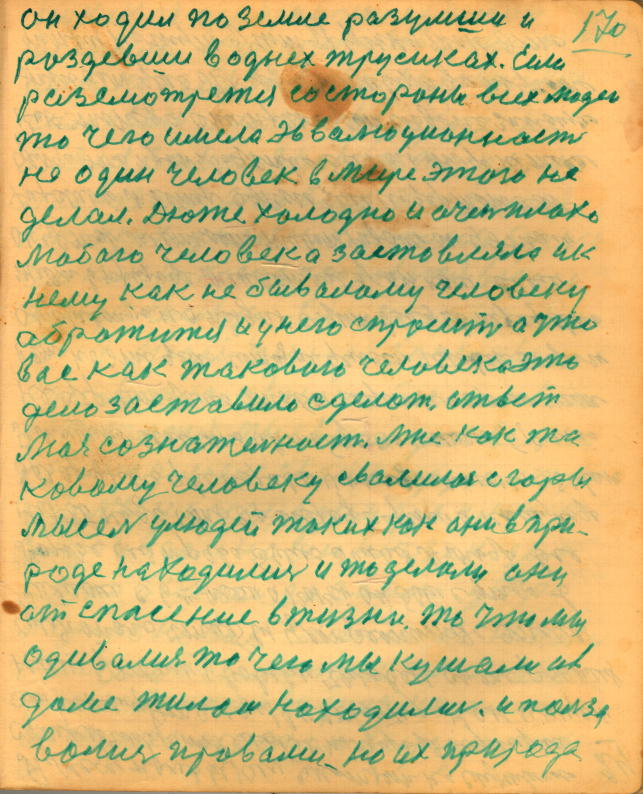 он ходил по земле разумши и
170
раздевши в однех трусиках. Если
раземотретя со стороны всех людей
то чего имела эввалюционность
не один человек в мире этого не
делал. Дюже холодно и очен плахо
Любого человека заставляла ик
нему как не бывалому человеку
абротится и у него спросить а что
вас как такового человека это
дело заставило сделат. ответ
Моя сознателност. Мне как та
ковому человеку свалилая с горы
Мысел улюдей таких как они в при-
роде находилия и то делали они
от спасение в жизни. то что мы
одивалия то чего мы кушали ив
доме жилом находилия. и полза
валия провами но их природа